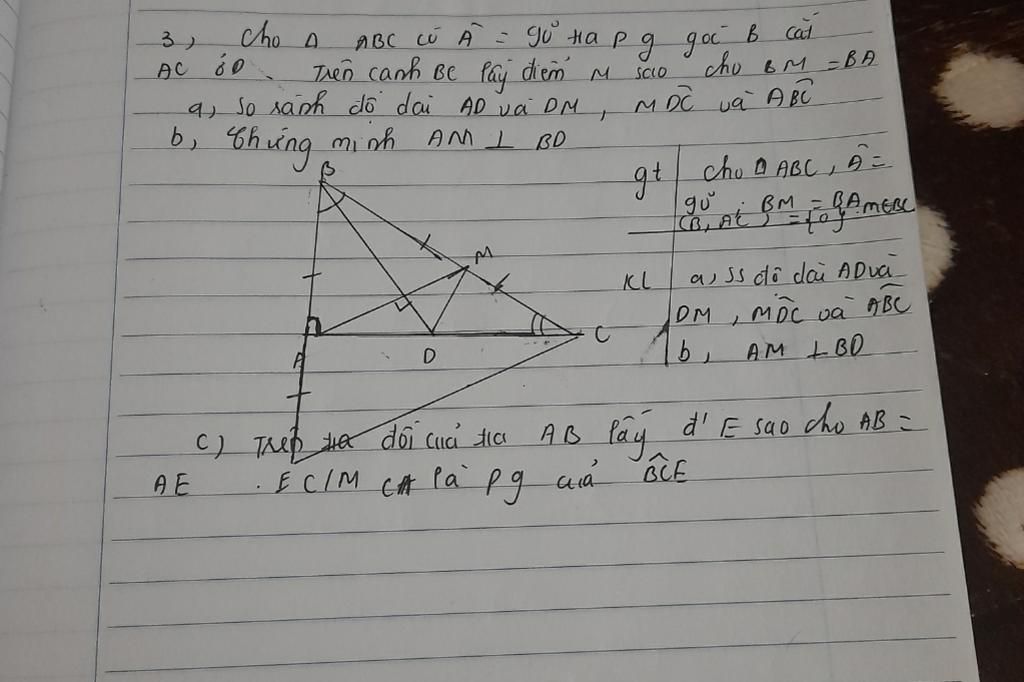 3, Cho Δ ABC có Â = 90° tia pg góc B cắt
AC ở D. Trên cạnh BC lấy điểm M sao cho BM = BA
a, So sánh độ dài AD và DM, MD̂C và AB̂C
b, Chứng minh AM ⊥ BD
gt cho Δ ABC, Â =
90°, BM = BA, M∈BC
B
M
A
D
C
KL a, SS độ dài AD và
DM, MD̂C và AB̂C
b, AM ⊥ BD
C) Trên tia đối của tia AB lấy đ' E sao cho AB =
AE . C/M CA là pg của BĈE